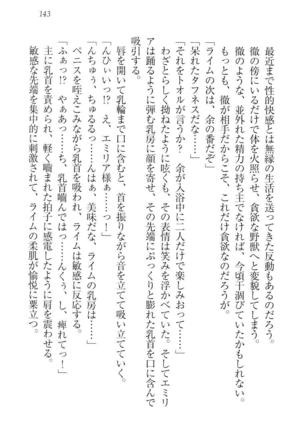 143
最近まで性的快感とは無縁の生活を送ってきた反動もあるのだろう。
徹の傍にいるだけで体を火照らせ、貪欲な野獣へと変貌してしまう。
徹のような、並外れた精力の持ち主でなければ、今頃干涸びていただろう。
もっとも、徹が相手だからこそ、これだけ貪欲なのだろうが。
「ライムの次は、余の番だぞ」
「呆れたタフネスだな……」
「それをトオルが言うか？ 余が入浴中に二人だけで楽しみおって……」
わざとらしく拗ねたように呟くも、その表情は笑みを浮かべていた。そしてエミリ
アは踊るように弾む乳房に顔を寄せ、その先端にぷっくりと膨れた乳首を口に含んで
吸引する。
「んひぃぃっ!? え、エミリア様ぁ……っ！」
唇を開いて乳輪まで口に含むと、首を振りながら音を立てて吸い立てていく。
「んちゅぅ、ちゅるるっ……んはぁ、美味だな、ライムの乳房は……」
ペニスを咥えこみながら乳首を吸われ、ライムは敏感に反応する。
「ふぁっ!? やぁあっ……ち、乳首噛んではっ……んくぅ、し、痺れてっ！」
主に乳首を責められ、軽く噛まれた拍子に感電したように肩を震わせる。
敏感な先端を集中的に刺激されて、ライムの柔肌が愉悦に粟立つ。